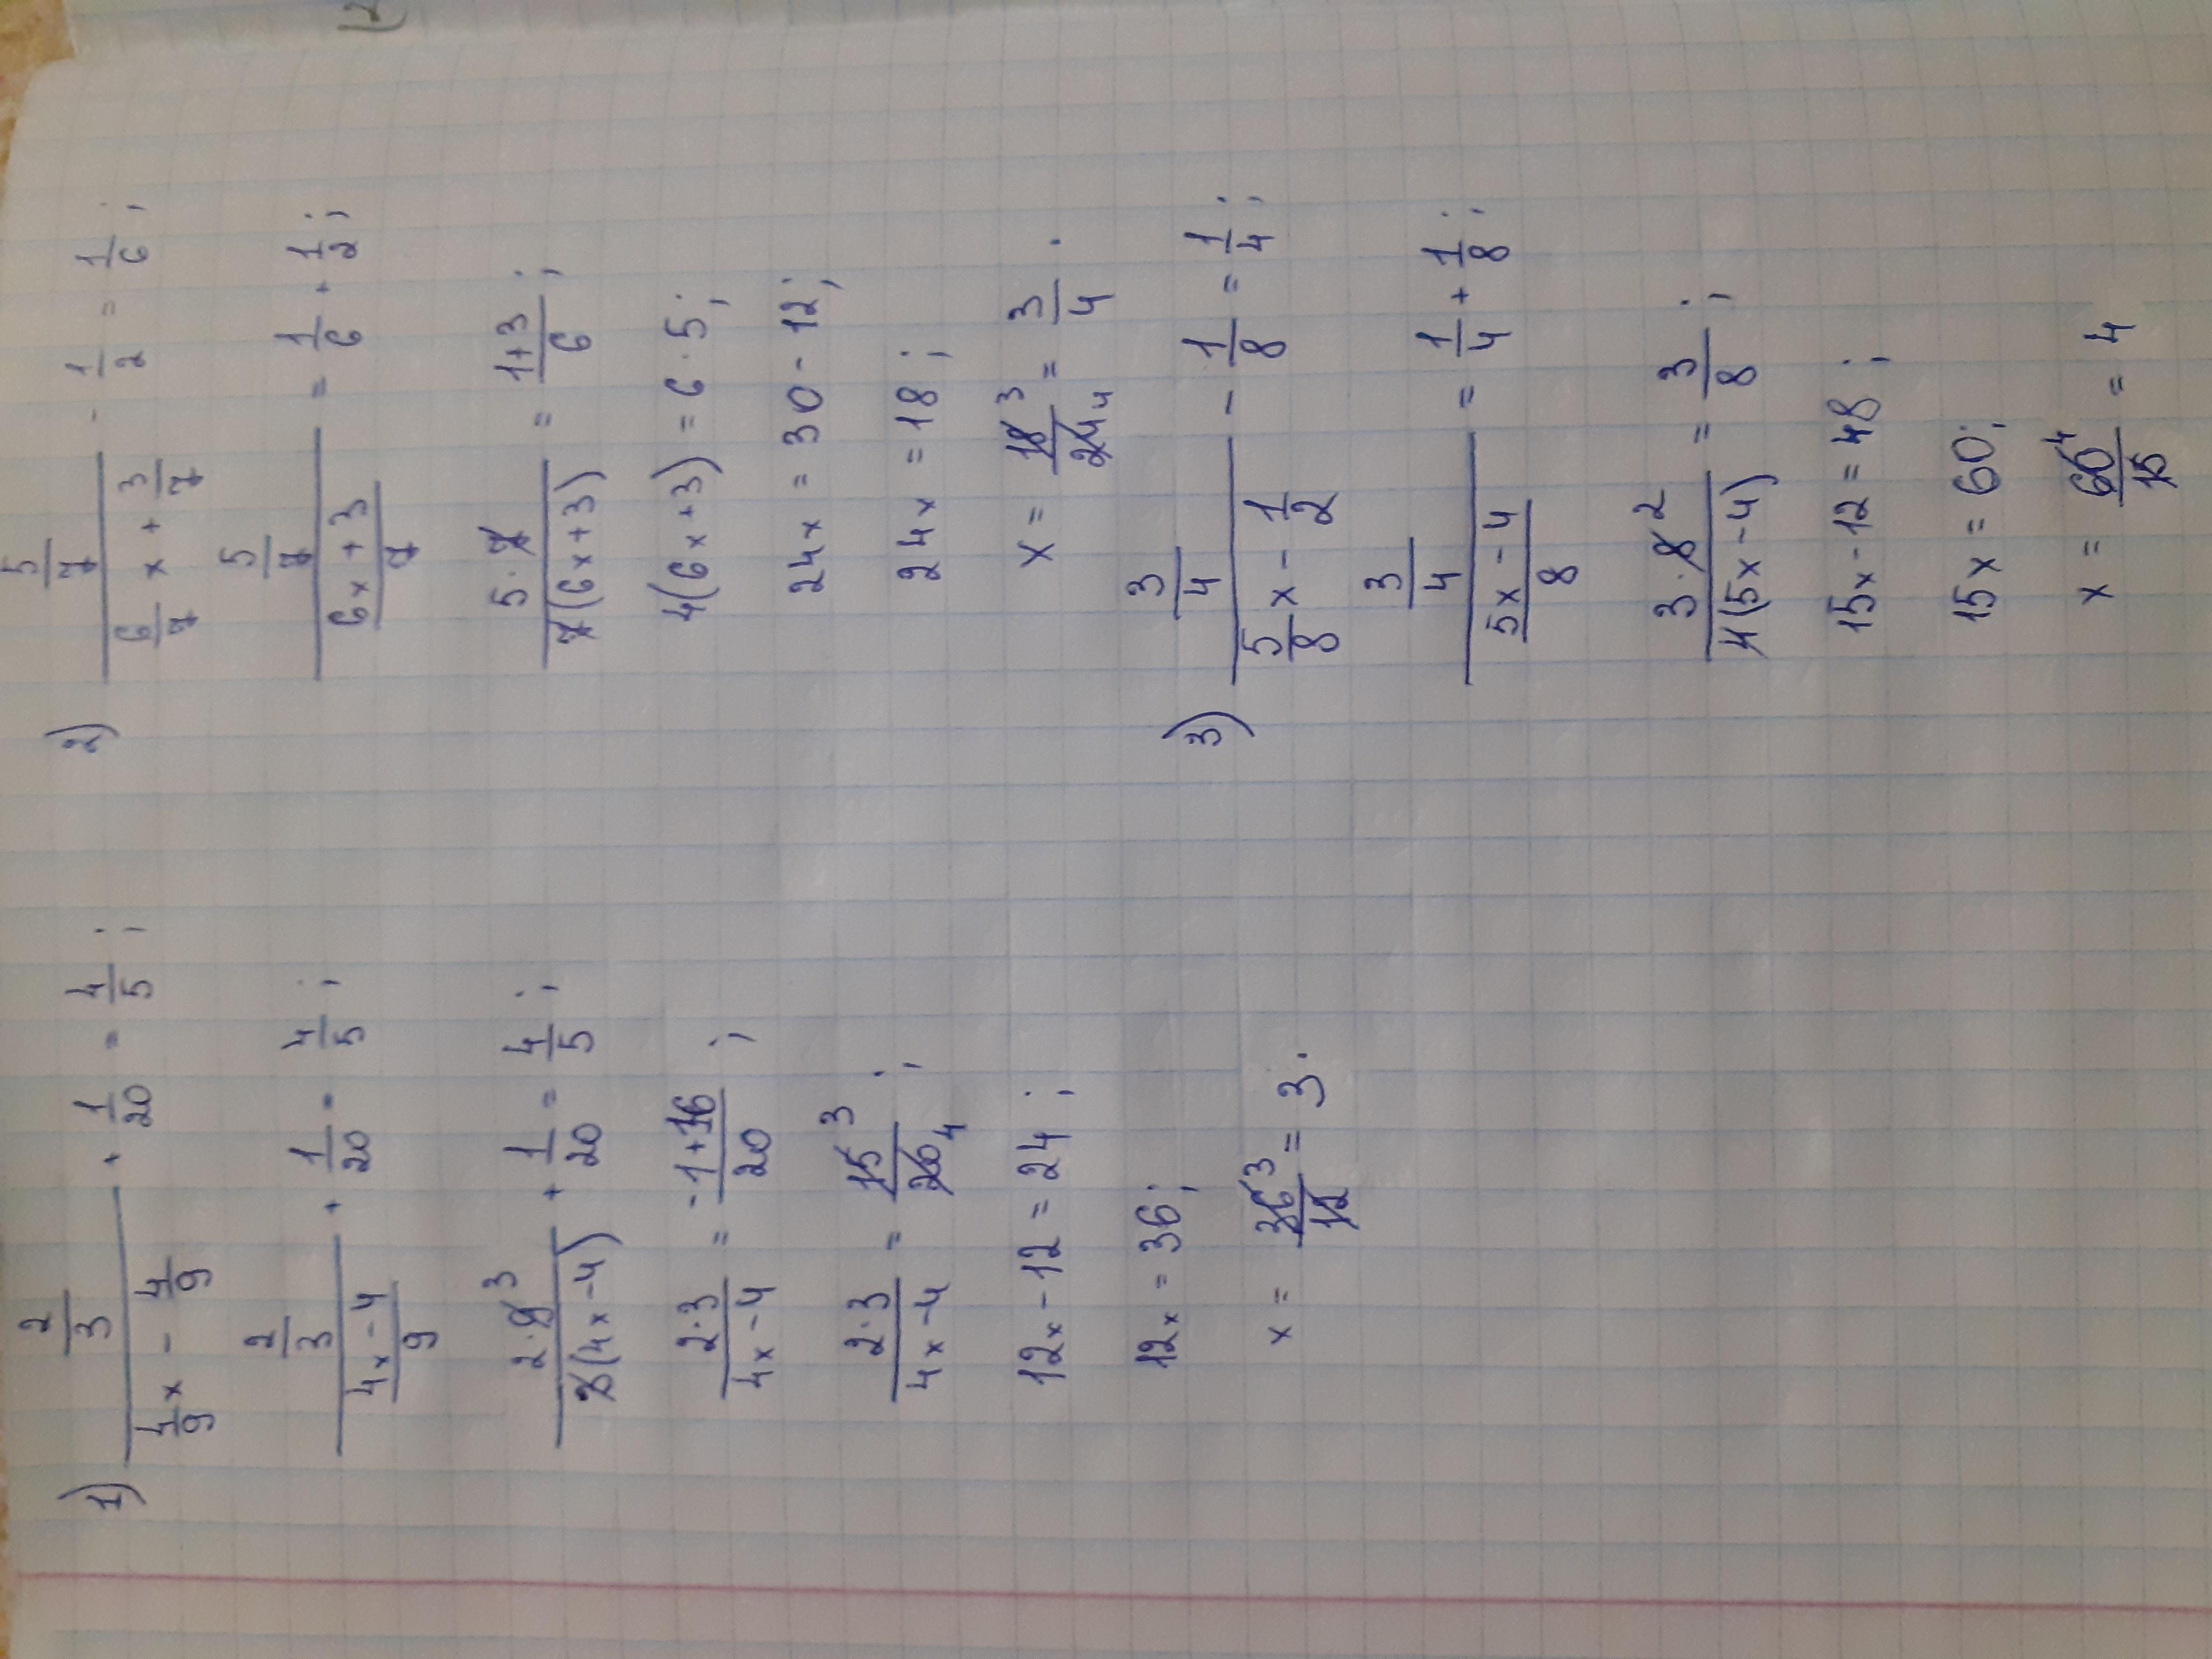 1) (2/3)/(4/9 x - 4/9) + 1/20 = 4/5 ;
(2/3)/((4x - 4)/9) + 1/20 = 4/5 ;
(2·9 3)/(3(4x - 4)) + 1/20 = 4/5 ;
(2·3)/(4x - 4) = (-1 + 16)/20 ;
(2·3)/(4x - 4) = 15 3/20 4 ;
12x - 12 = 24 ;
12x = 36 ;
x = 36 3/12 = 3 .
2) (5/7)/(6/7 x + 3/7) - 1/2 = 1/6 ;
(5/7)/((6x + 3)/7) = 1/6 + 1/2 ;
(5·7)/(7(6x + 3)) = (1+3)/6 ;
4(6x + 3) = 6·5 ;
24x = 30 - 12 ;
24x = 18 ;
x = 18 3/24 4 = 3/4 .
3) (3/4)/(5/8 x - 1/2) - 1/8 = 1/4 ;
(3/4)/((5x - 4)/8) = 1/4 + 1/8 ;
(3·8 2)/(4(5x - 4)) = 3/8 ;
15x - 12 = 48 ;
15x = 60 ;
x = 60 4/15 = 4